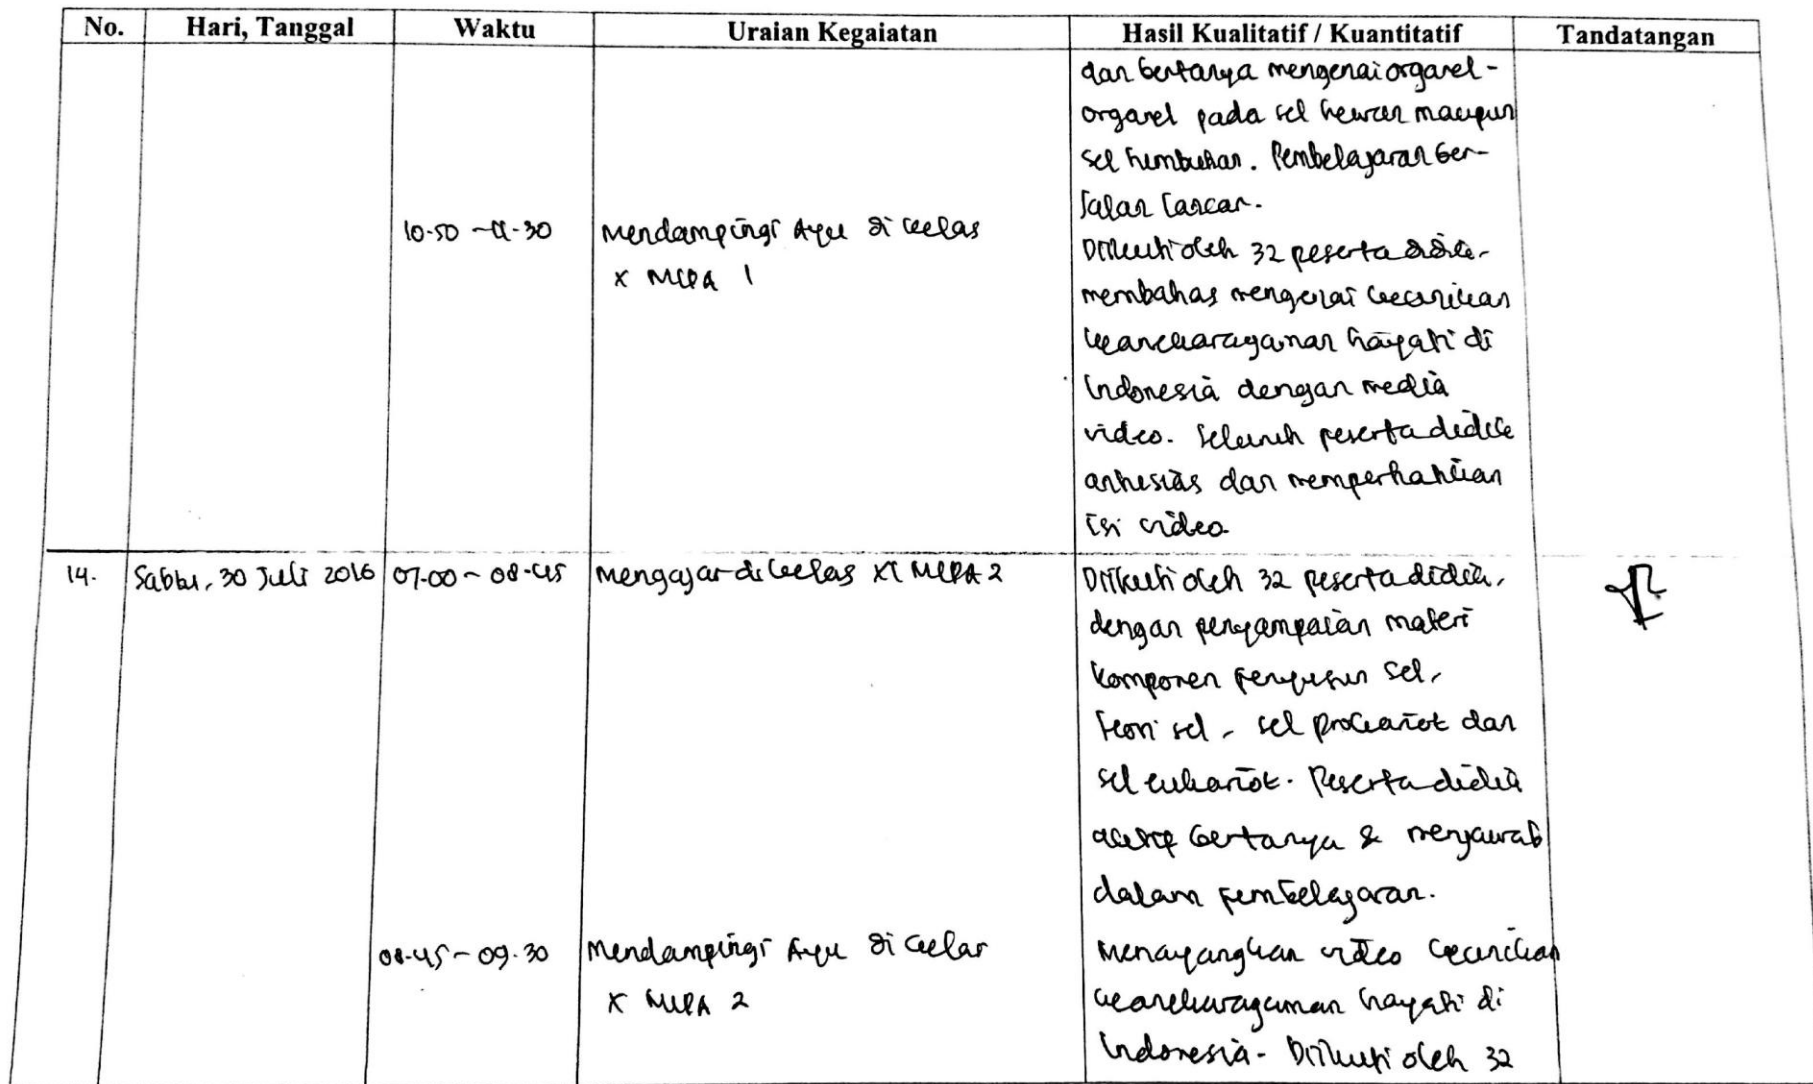 No. Hari, Tanggal Waktu Uraian Kegaiatan Hasil Kualitatif / Kuantitatif Tandatangan
dan bertanya mengenai organel-
organel pada sel hewan maupun
sel tumbuhan. Pembelajaran ber-
jalan lancar.
10.50 - 11.30 Mendampingi Ayu di kelas
X MIPA 1
Diikuti oleh 32 peserta didik.
membahas mengenai keunikan
keanekaragaman hayati di
Indonesia dengan media
video. Seluruh peserta didik
antusias dan memperhatikan
isi video.
14. Sabtu, 30 Juli 2016 07.00 - 08.45 Mengajar di kelas XI MIPA 2
Diikuti oleh 32 peserta didik,
dengan penyampaian materi
komponen penyusun sel,
teori sel, sel prokariot dan
sel eukariot. Peserta didik
aktif bertanya & menjawab
dalam pembelajaran.
08.45 - 09.30 Mendampingi Ayu di kelas
X MIPA 2
Menayangkan video keunikan
keanekaragaman hayati di
Indonesia. Diikuti oleh 32